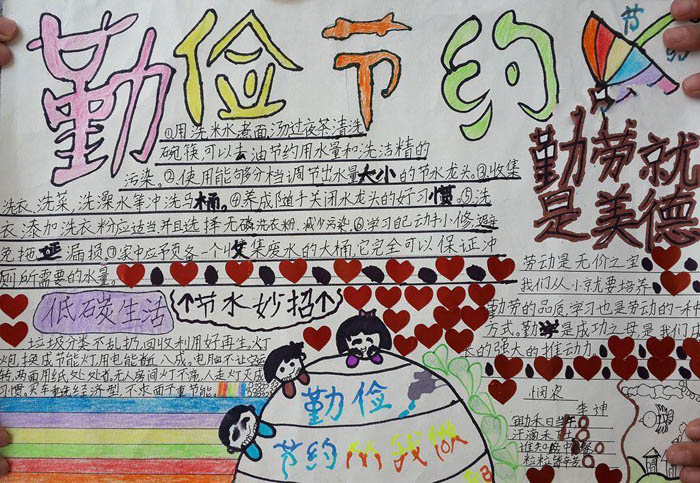 勤俭节约
节约
①用洗米水煮面汤过夜茶清洗
碗筷,可以去油节约用水量和洗洁精的
污染。②使用能够分档调节出水量大小的节水龙头。③收集
洗衣、洗菜、洗澡水等冲洗马桶。④养成随手关闭水龙头的好习惯。⑤洗
衣、添加洗衣粉应适当并且选择无磷洗衣粉,减少污染。⑥学习自己动手小修,避
免 漏损。⑦家中应予预备一个收集废水的大桶,它完全可以保证冲
厕所需要的水量。
勤劳就
是美德
劳动是无价之宝
我们从小就要培养
勤劳的品质,学习也是劳动的一种
方式。勤 是成功之母是我们
大的强大的推动力
低碳生活
节水妙招
垃圾分类不乱扔,回收利用好再生。灯
泡换成节能灯,用电能省八成。电脑不让
转,两面用纸处处省,无人房间灯不亮,人走灯灭成
习惯,天车 经济型,不求面子重节能。
勤俭
节约 我做
悯农
李绅
锄禾日当午
汗滴禾下
谁知盘中
粒粒皆辛苦